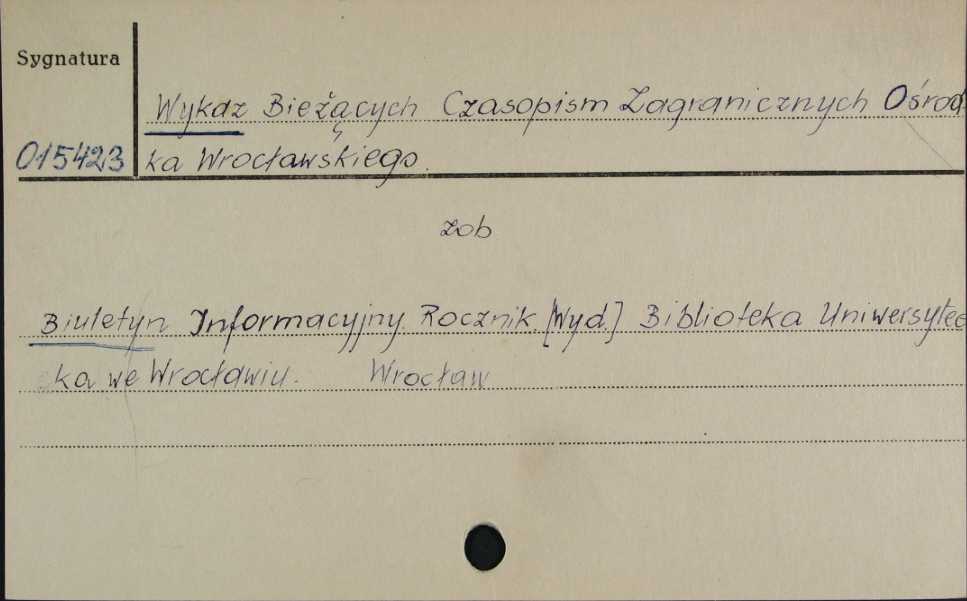 Sygnatura
Wykaz Bieżących Czasopism Zagranicznych Ośrod
015423 ka Wrocławskiego.
zob
Biuletyn Informacyjny. Rocznik. [Wyd.] Biblioteka Uniwersytec
ka we Wrocławiu. Wrocław